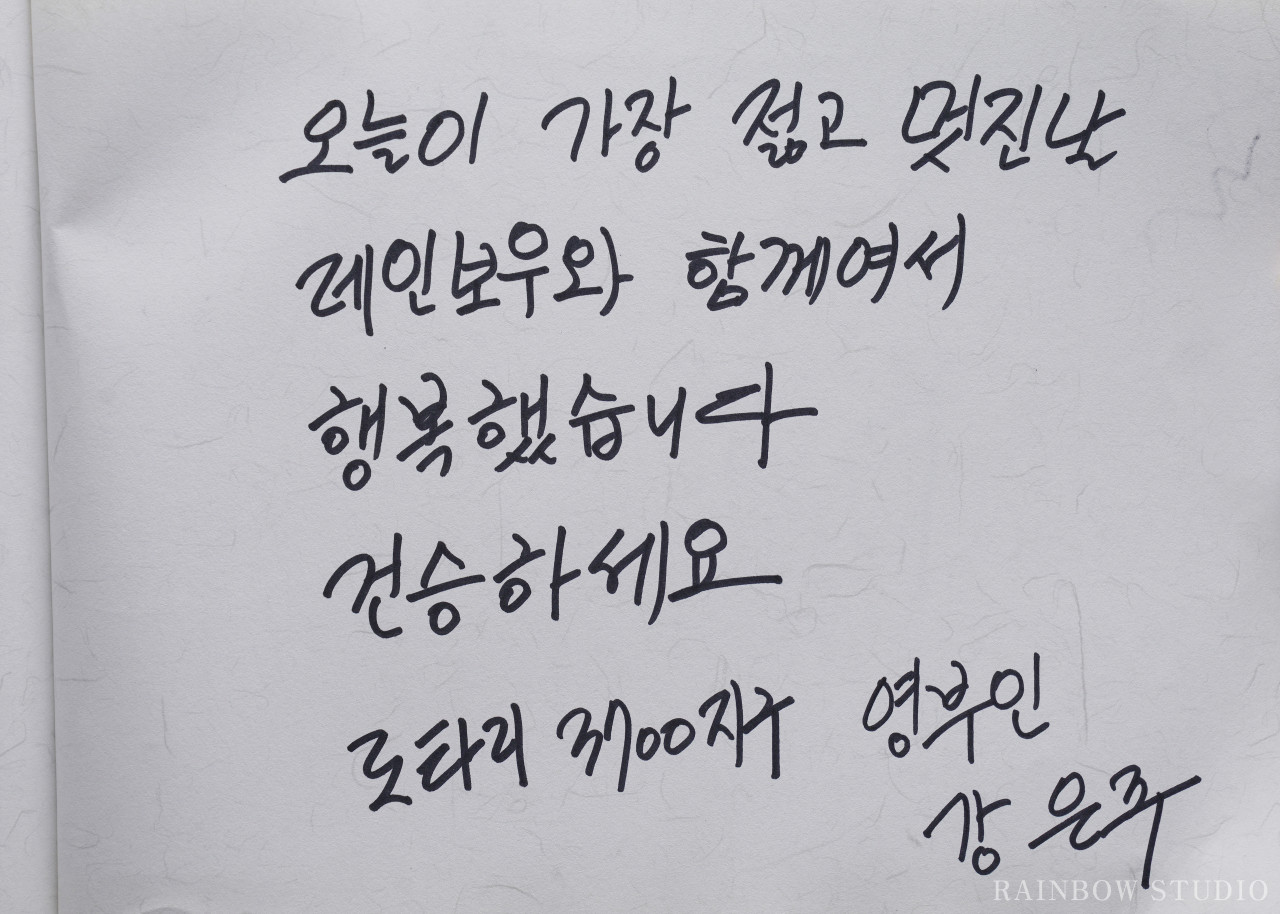 오늘이 가장 젊고 멋진날
레인보우와 함께여서
행복했습니다
건승하세요
로타리 3700지구 영부인
강은주
RAINBOW STUDIO